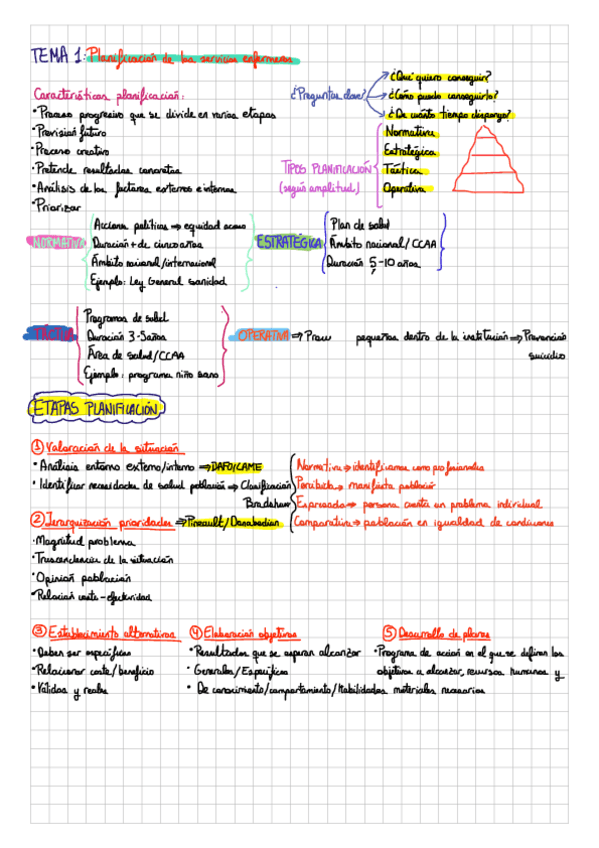 TEMA 1: Planificación de los servicios enfermeros
¿Qué quiero conseguir?
Características planificación:
¿Preguntas clave?
¿Cómo puedo conseguirlo?
• Proceso progresivo que se divide en varias etapas
¿De cuánto tiempo dispongo?
• Provisión futuro
Normativa
• Proceso creativo
TIPOS PLANIFICACIÓN
Estratégica
• Pretende resultados concretos
(según amplitud)
Táctica
• Análisis de los factores externos e internos
Operativa
• Priorizar
NORMATIVA
Acciones políticas ⇒ equidad acceso
Duración + de cinco años
Ámbito nacional/internacional
Ejemplo: Ley General sanidad
ESTRATÉGICA
Plan de salud
Ámbito nacional/CCAA
Duración 5-10 años
TÁCTICA
Programas de salud
Duración 3-5 años
Área de salud/CCAA
Ejemplo: programa niño sano
OPERATIVA ⇒ pequeños dentro de la institución ⇒
suicidio
ETAPAS PLANIFICACIÓN
① Valoración de la situación
• Análisis entorno externo/interno ⇒ DAFO/CAME
• Identificar necesidades de salud población ⇒ Clasificación
Bradshaw
Normativa → identificamos como profesionales
Percibida → manifiesta población
Expresada → persona cuenta un problema individual
Comparativa → población en igualdad de condiciones
② Jerarquización prioridades ⇒ Pineault/Donabedian
• Magnitud problema
• Trascendencia de la situación
• Opinión población
• Relación coste-efectividad
③ Establecimiento alternativas
• Deben ser específicas
• Relacionar coste/beneficio
• Válidas y reales
④ Elaboración objetivos
• Resultados que se esperan alcanzar
• Generales/Específicos
• De conocimiento/comportamiento/Habilidades
⑤ Desarrollo de planes
• Programa de acción en el que se definen los
objetivos a alcanzar, recursos humanos y
materiales necesarios